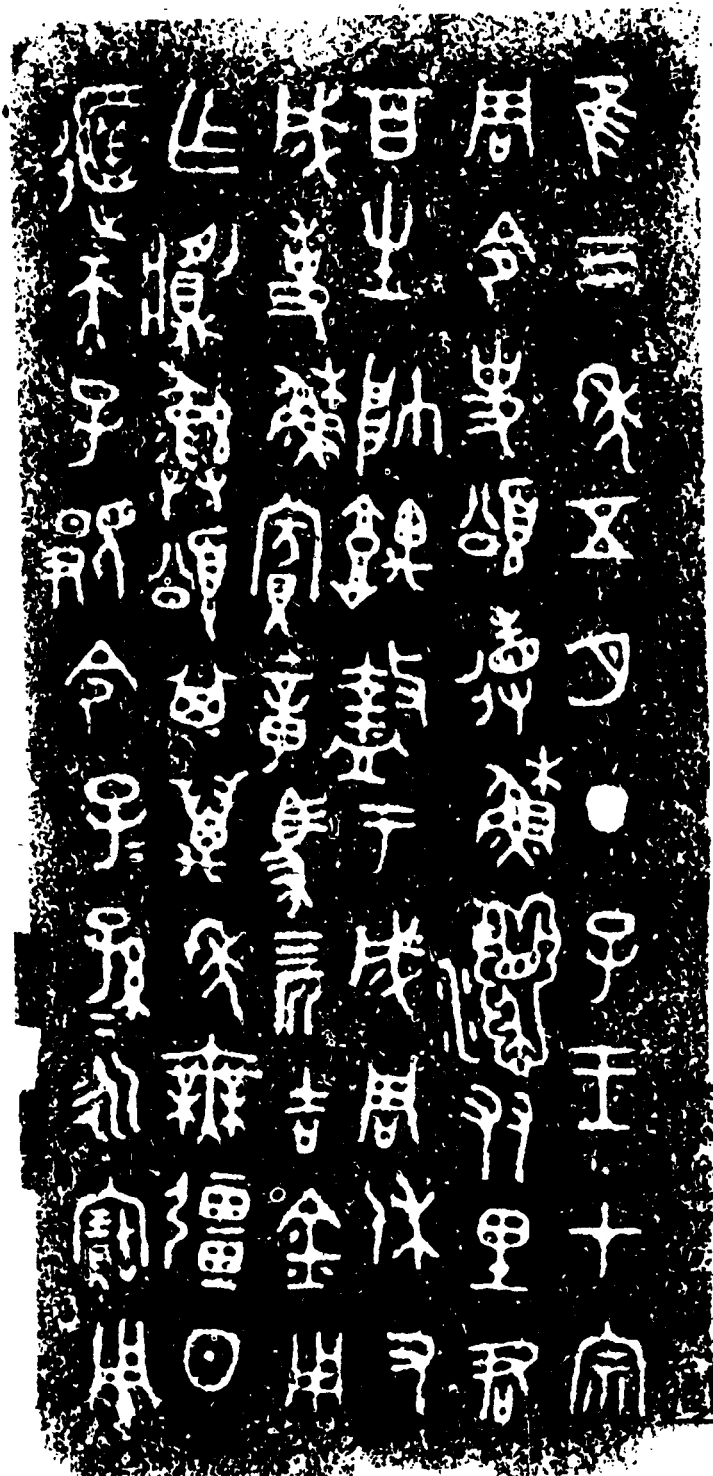 隹三年五月丁子王才宗
周令史頌省穌友里君
百生帥堣盩于成周休又
成事穌賓章馬四匹吉金用
乍將彝頌其萬年無疆日
天子顯令子=孫=永寶用